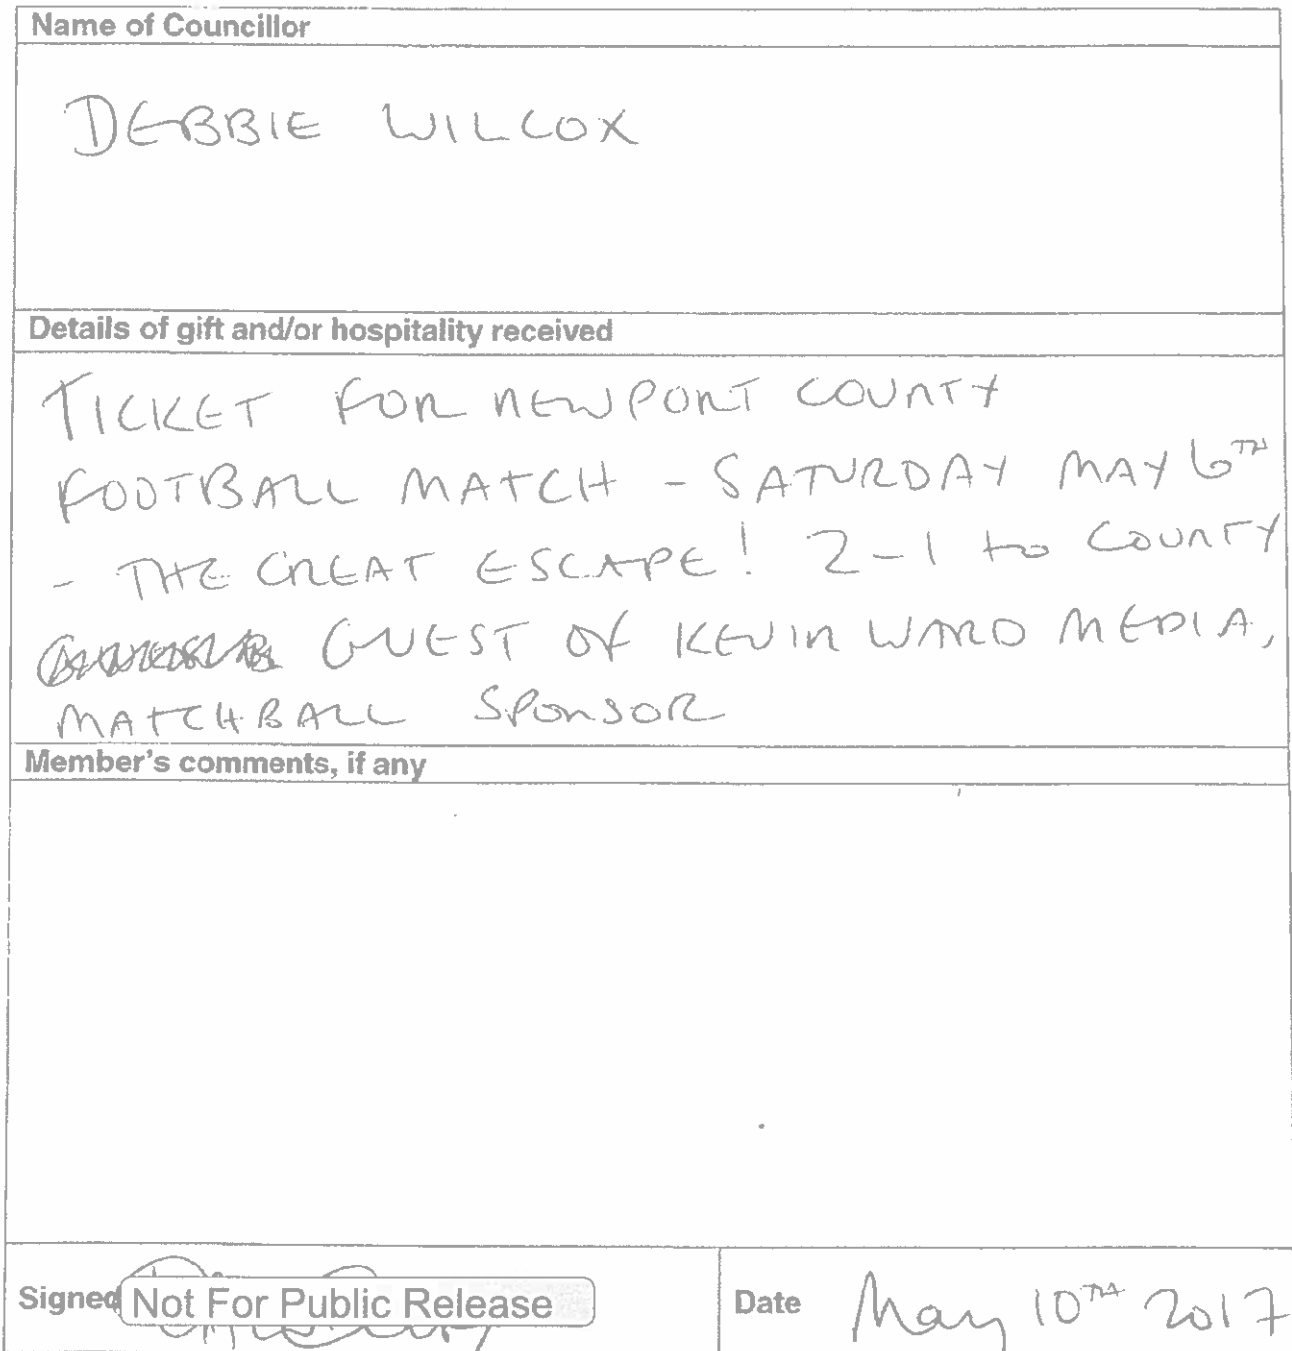 Name of Councillor
DEBBIE WILCOX
Details of gift and/or hospitality received
TICKET FOR NEWPORT COUNTY
FOOTBALL MATCH - SATURDAY MAY 6TH
- THE GREAT ESCAPE! 2-1 to COUNTY
GUEST OF KEVIN WARD MEDIA,
MATCHBALL SPONSOR
Member's comments, if any
Signed Not For Public Release
Date May 10TH 2017